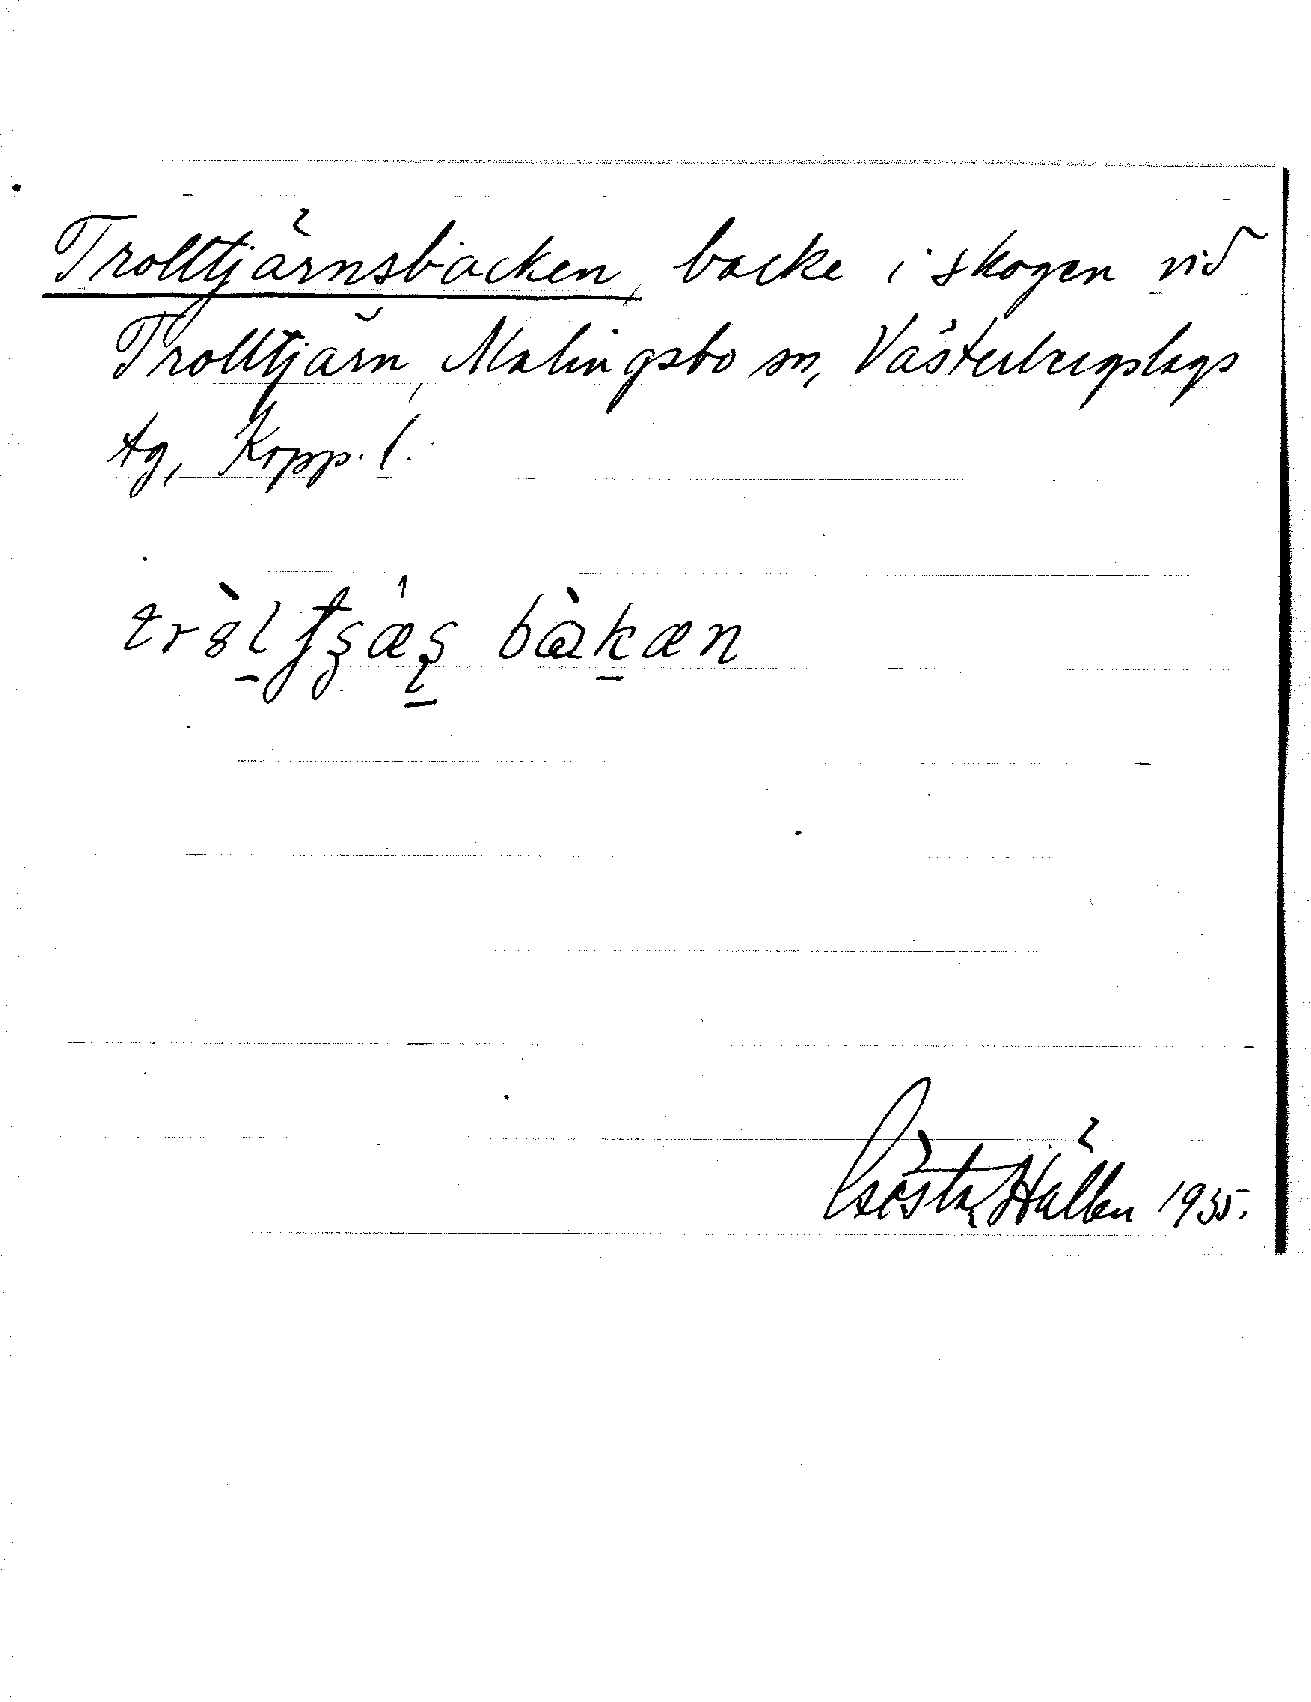 Trolltjärnsbacken, backe i skogen vid
Trolltjärn, Malingsbo sn, Västerbergslags
tg, Kopp. l.
bàkæn
Gösta Hållén 1935.